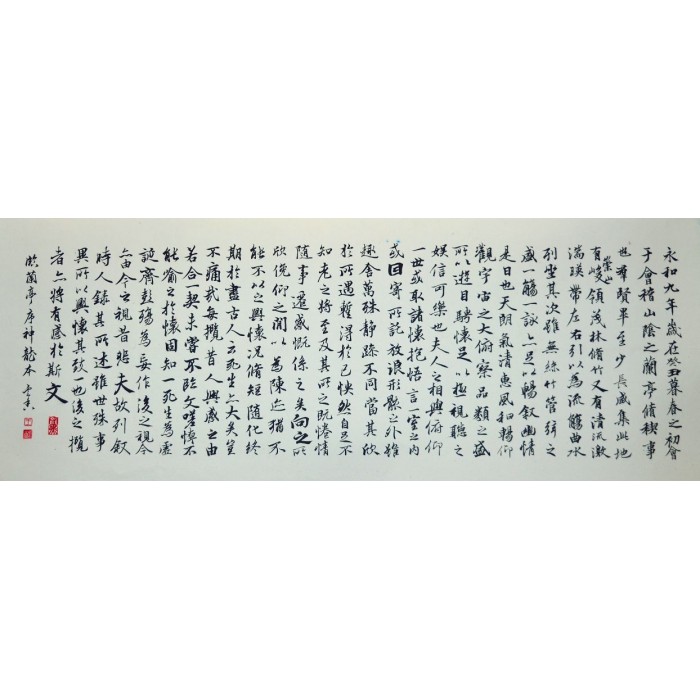 永和九年歲在癸丑暮春之初會
于會稽山陰之蘭亭脩稧事
也羣賢畢至少長咸集此地
有崇山峻領茂林脩竹又有清流激
湍暎帶左右引以為流觴曲水
列坐其次雖無絲竹管弦之
盛一觴一詠亦足以暢叙幽情
是日也天朗氣清惠風和暢仰
觀宇宙之大俯察品類之盛
所以遊目騁懷足以極視聽之
娛信可樂也夫人之相與俯仰
一世或取諸懷抱悟言一室之內
或因寄所託放浪形骸之外雖
趣舍萬殊靜躁不同當其欣
於所遇暫得於己怏然自足不
知老之將至及其所之既惓情
隨事遷感慨係之矣向之所
欣俛仰之閒以為陳迹猶不
能不以之興懷況脩短隨化終
期於盡古人云死生亦大矣豈
不痛哉每攬昔人興感之由
若合一契未嘗不臨文嗟悼不
能喻之於懷固知一死生為虛
誕齊彭殤為妄作後之視今
亦由今之視昔悲夫故列叙
時人錄其所述雖世殊事
異所以興懷其致一也後之攬
者亦將有感於斯文
臨蘭亭序神龍本